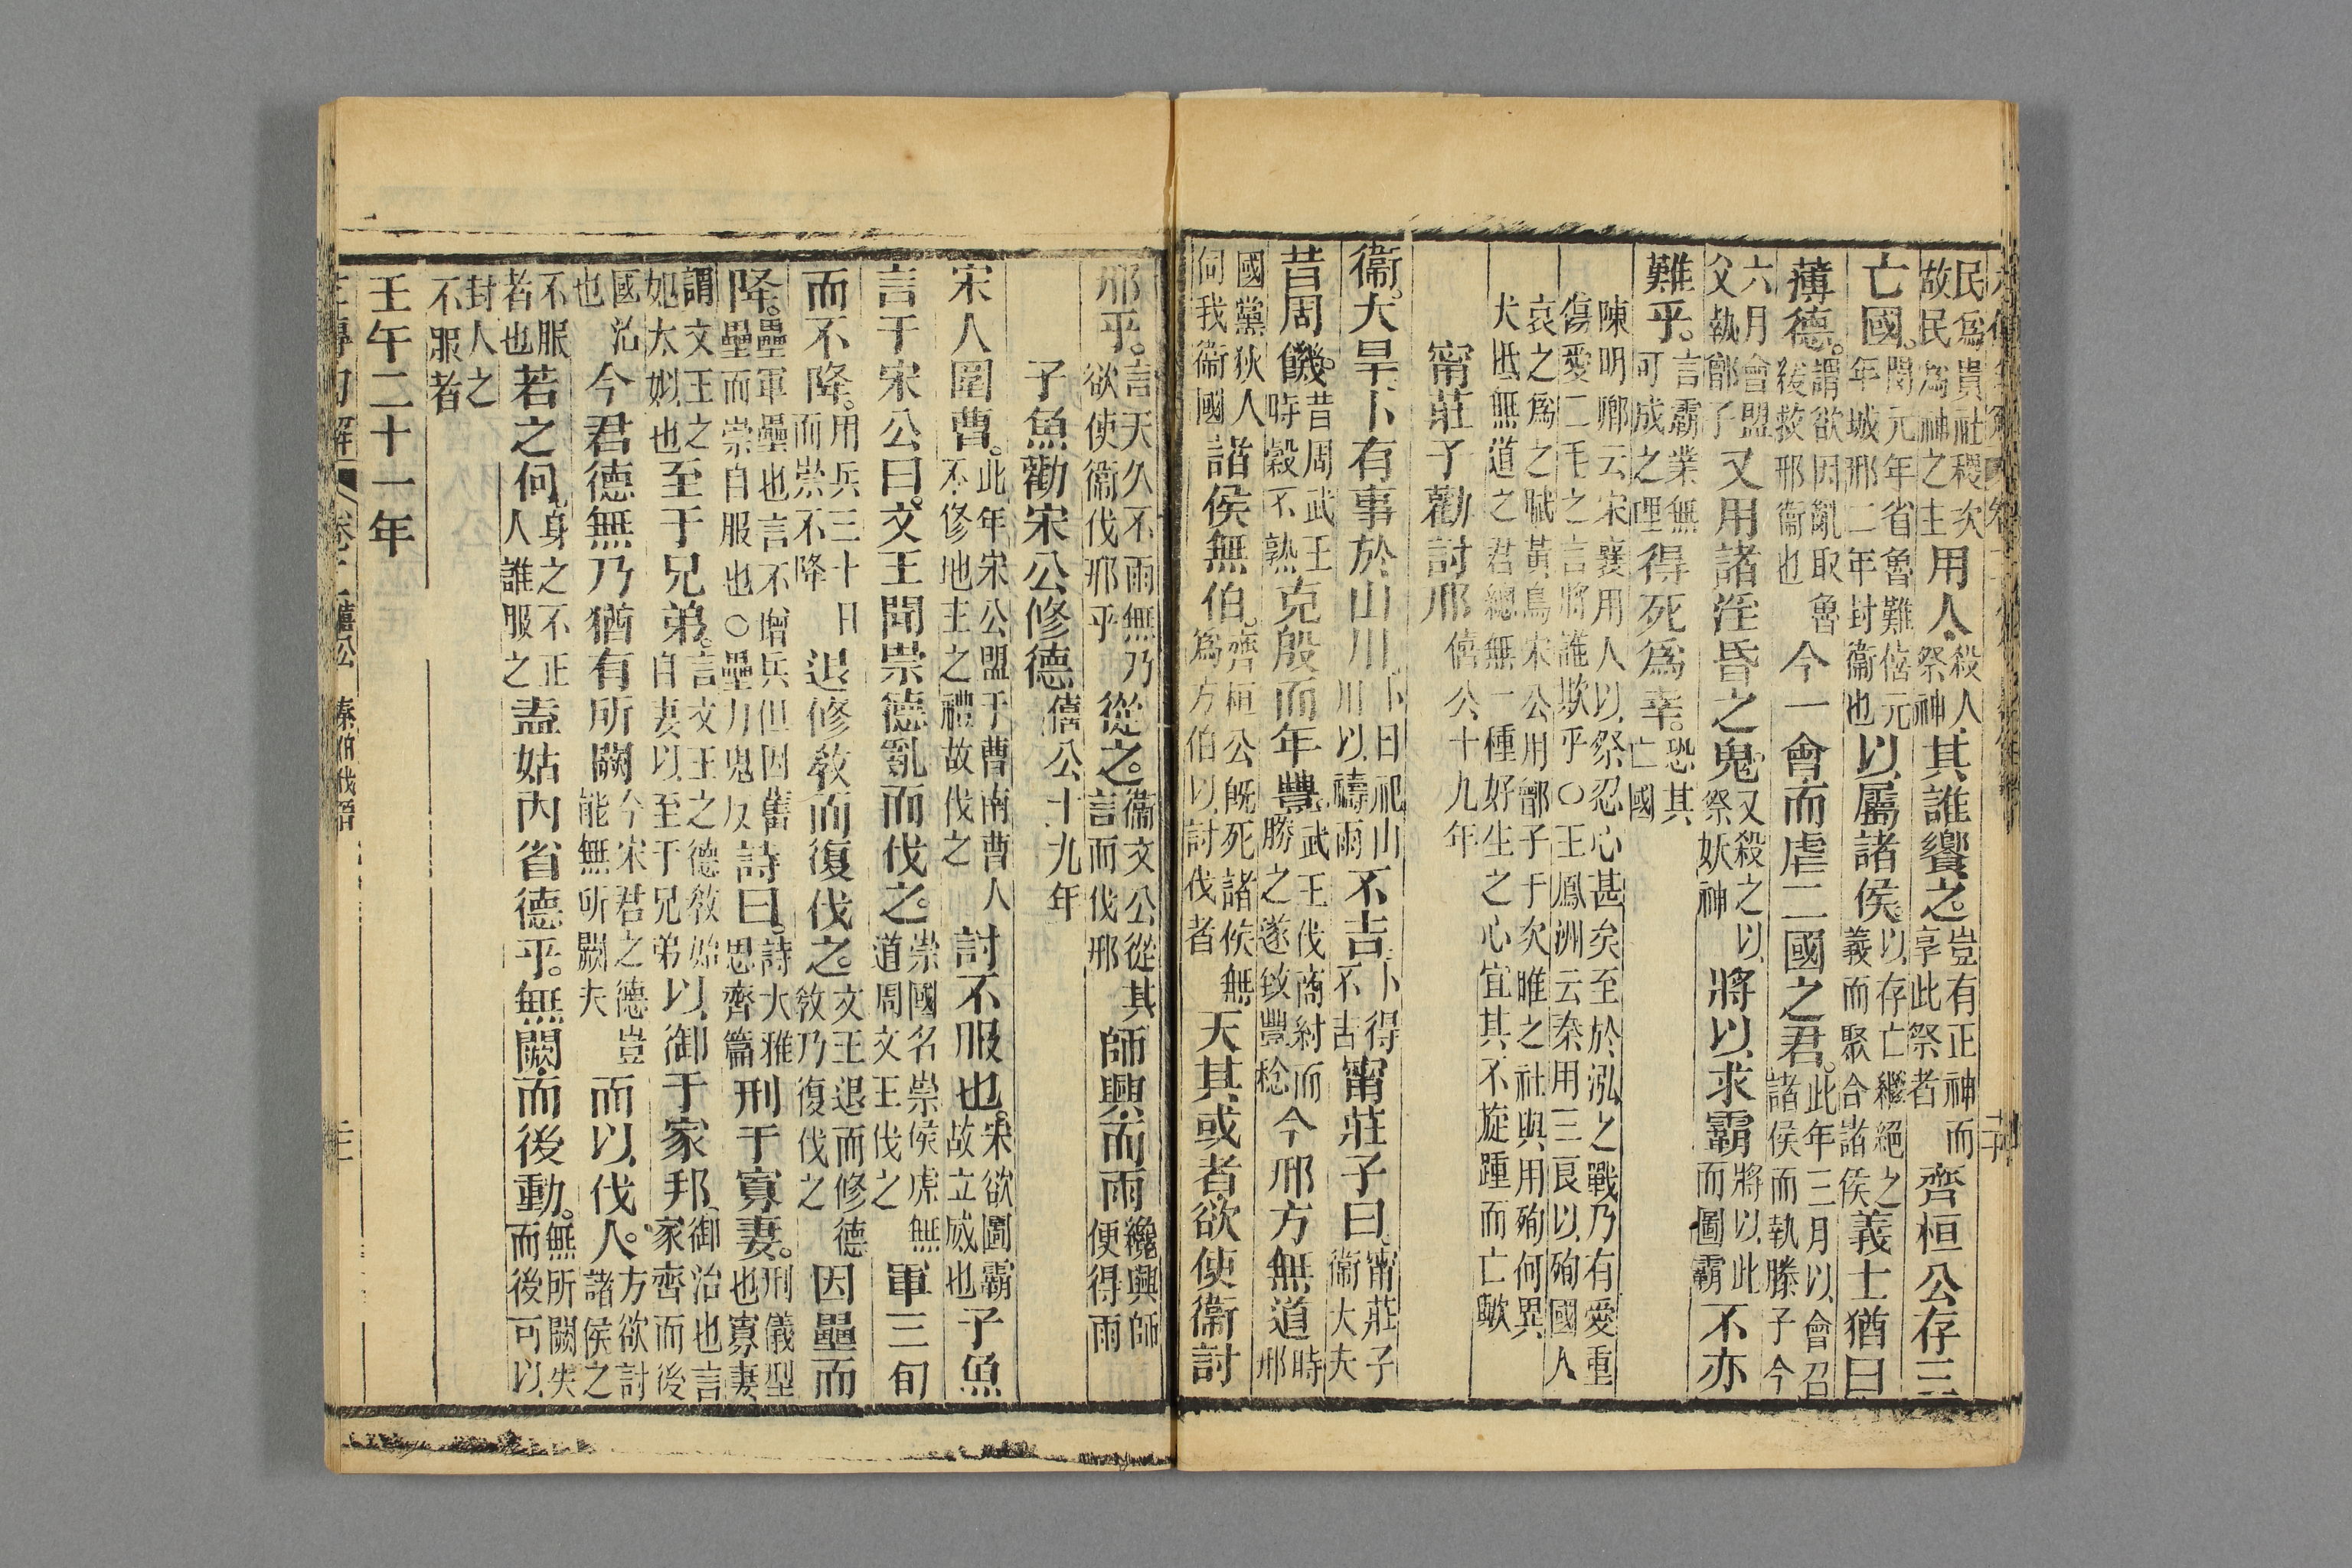 民為貴社稷次故民為神之主用人殺人祭神其誰饗之。豈有正神而享此祭者齊桓公存三
亡國。閔元年省魯難僖元年城邢二年封衞也以屬諸侯。以存亡繼絕之義而聚合諸侯義士猶曰
薄德。謂欲因亂取魯後救邢衞也今一會而虐二國之君。此年三月以會召諸侯而執滕子今
六月會盟父執鄫子又用諸淫昏之鬼。又殺之以祭妖神將以求霸將以此而圖霸不亦
難乎。言霸業無可成之理得死為幸。恐其亡國
陳明卿云宋襄用人以祭忍心甚矣至於泓之戰乃有愛重
傷愛二毛之言將誰欺乎○王鳳洲云秦用三良以殉國人
哀之為之賦黃鳥宋公用鄫子于次睢之社與用殉何異
大抵無道之君總無一種好生之心宜其不旋踵而亡歟
甯莊子勸討邢 僖公十九年
衞。大旱卜有事於山川。卜日祀山川以禱雨不吉。卜得不吉甯莊子曰。甯莊子衞大夫
昔周饑。昔周武王時穀不熟克殷而年豐。武王伐商紂而勝之遂致豐稔今邢方無道時邢
國黨狄人伺我衞國諸侯無伯。齊桓公既死諸侯無為方伯以討伐者天其或者欲使衞討
邢乎。言天久不雨無乃欲使衞伐邢乎從之。衞文公從其言而伐邢師興而雨纔興師便得雨
子魚勸宋公修德 僖公十九年
宋人圍曹。此年宋公盟于曹南曹人不修地主之禮故伐之討不服也。宋欲圖霸故立威也子魚
言于宋公曰。文王聞崇德亂而伐之。崇國名崇侯虎無道周文王伐之軍三旬
而不降。用兵三十日而崇不降退修敎而復伐之。文王退而修德敎乃復伐之因壘而
降。壘軍壘也言不增兵但因舊壘而崇自服也○壘力鬼反詩曰。詩大雅思齊篇刑于寡妻。刑儀型也寡妻
謂文王之妃太姒也至于兄弟。言文王之德敎始自妻以至于兄弟以御于家邦。御治也言家齊而後
國治也今君德無乃猶有所闕今宋君之德豈能無所闕失而以伐人。方欲討諸侯之
不服者也若之何。身之不正人誰服之盍姑內省德乎。無闕而後動。無所闕失而後可以
封人之不服者
壬午二十一年